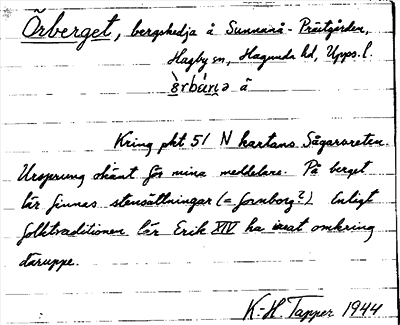 Örberget, bergskedja å Sunnanå - Prästgården,
Hagby sn, Hagunda hd, Upps. l.
å
Kring pkt 51 N kartans Sågarsreten.
Ursprung okänt för mina meddelare. På berget
lär finnas stensättningar (= fornborg?) Enligt
folktraditionen lär Erik XIV ha irrat omkring
däruppe.
K-H Tapper 1944